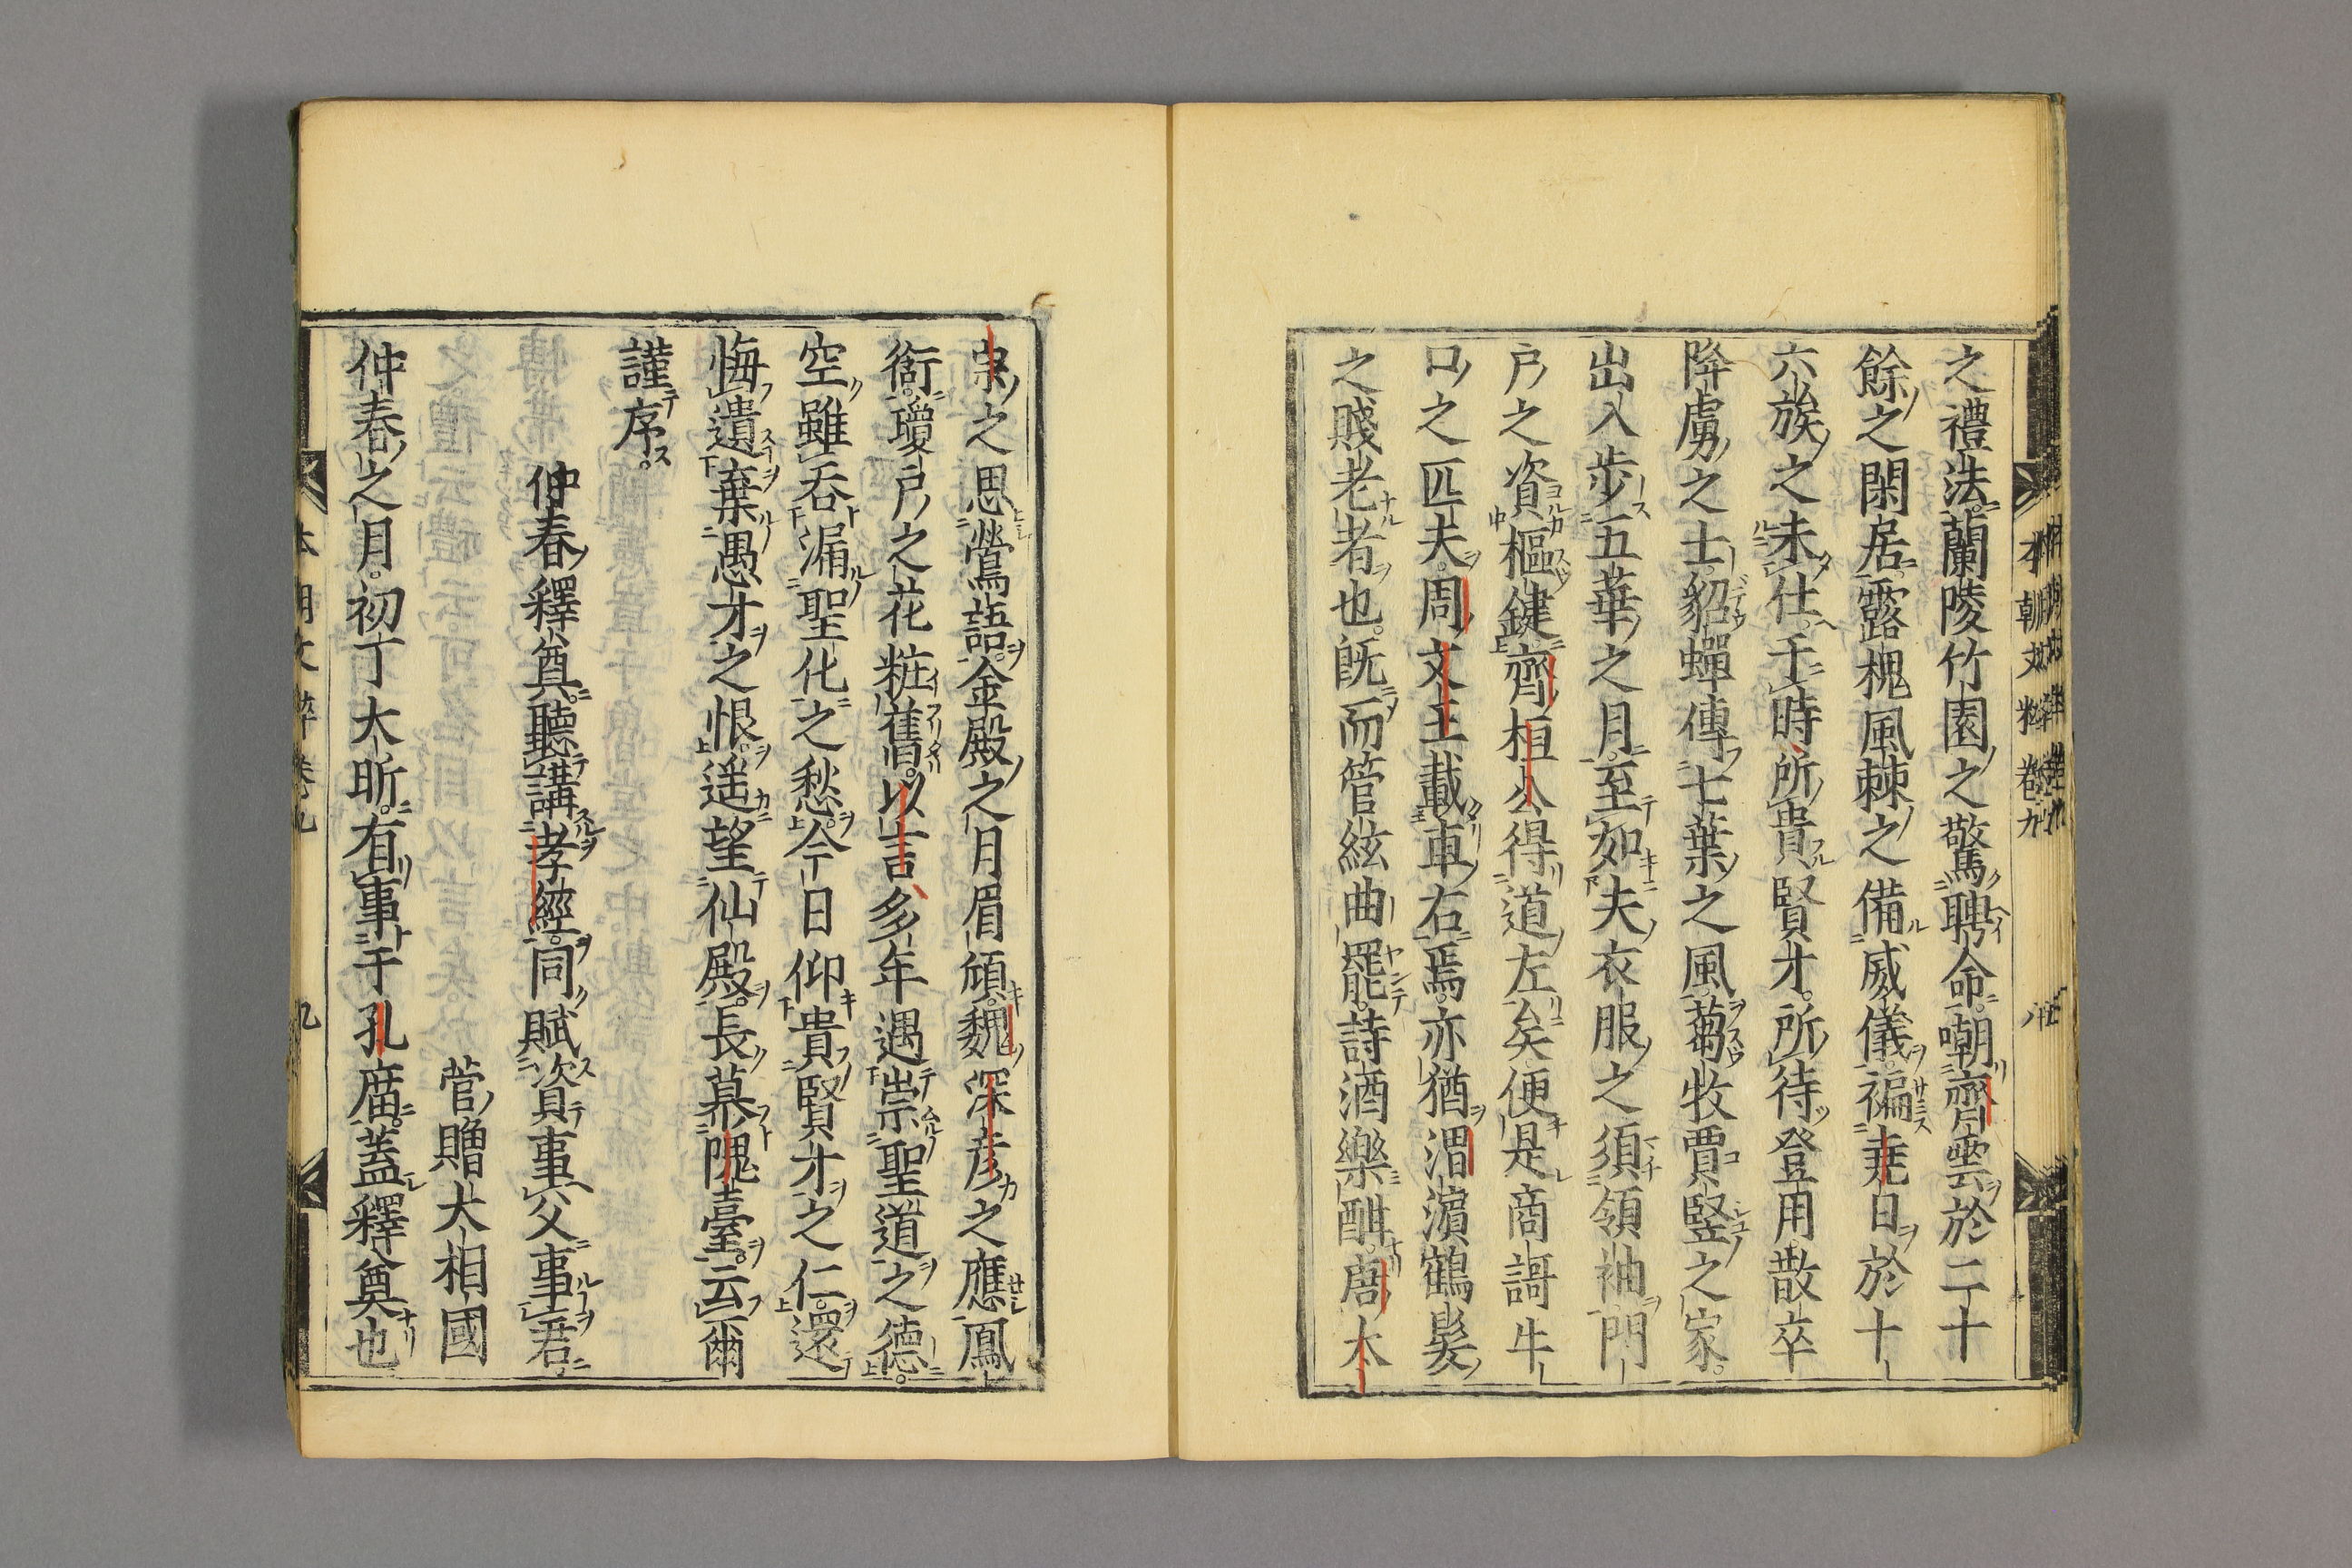 之禮法蘭陵竹園之驚聘命嘲齊雲於二十
餘之閑居露槐風棘之備威儀褊堯日於十
六族之未仕于時所貴賢才所待登用散卒
降虜之士貂蟬傳七葉之風蒭牧賈竪之家
出入歩五華之月至如夫衣服之須領袖門
戸之資樞鍵齊桓公得道左矣便是商謌牛
口之匹夫周文王載車右焉亦猶渭濵鶴髪
之賤老者也既而管絃曲罷詩酒樂酣唐太
宗之思鶯語金殿之月眉頎魏深彦之應鳳
銜瓊戸之花粧舊以言多年遇崇聖道之德
空雖呑漏聖化之愁今日仰貴賢才之仁還
悔遺棄愚才之恨遥望仙殿長慕隗臺云爾
謹序
仲春釋奠聽講孝經同賦資事父事君
菅贈大相國
仲春之月初丁大昕有事于孔廟蓋釋奠也
本朝文粹卷九
本朝文粹卷九 九